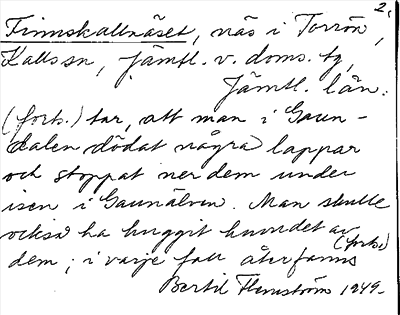 2.
Finnskallnäset, näs i Torrön,
Kalls sn, Jämtl. v. doms. tg,
Jämtl. län.
(forts.) tar, att man i Gaun-
dalen dödat några lappar
och stoppat ner dem under
isen i Gaunälven. Man skulle
också ha huggit huvudet av
dem; i varje fall återfanns (forts.)
Bertil Flemström 1949.